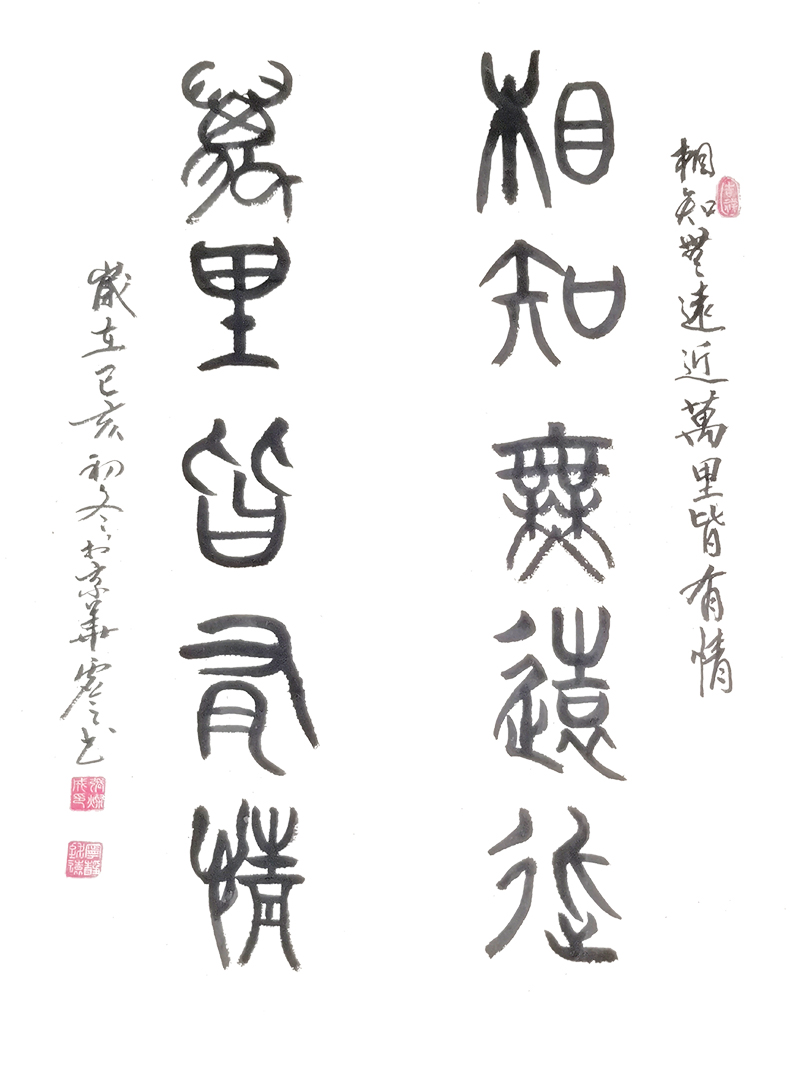 相知無遠近萬里皆有情
相知無遠近
萬里皆有情
歲在己亥初冬於京華雲之書